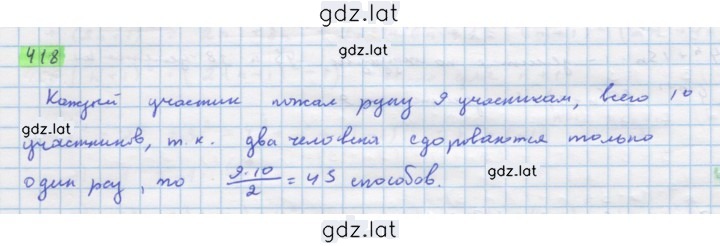 gdz.lat
418
gdz.lat
Каждый участник пожал руку 9 участникам, всего 10
gdz.lat
участников, т.к. два человека здороваются только
один раз, то 9·10/2 = 45 способов.
gdz.lat
gdz.lat